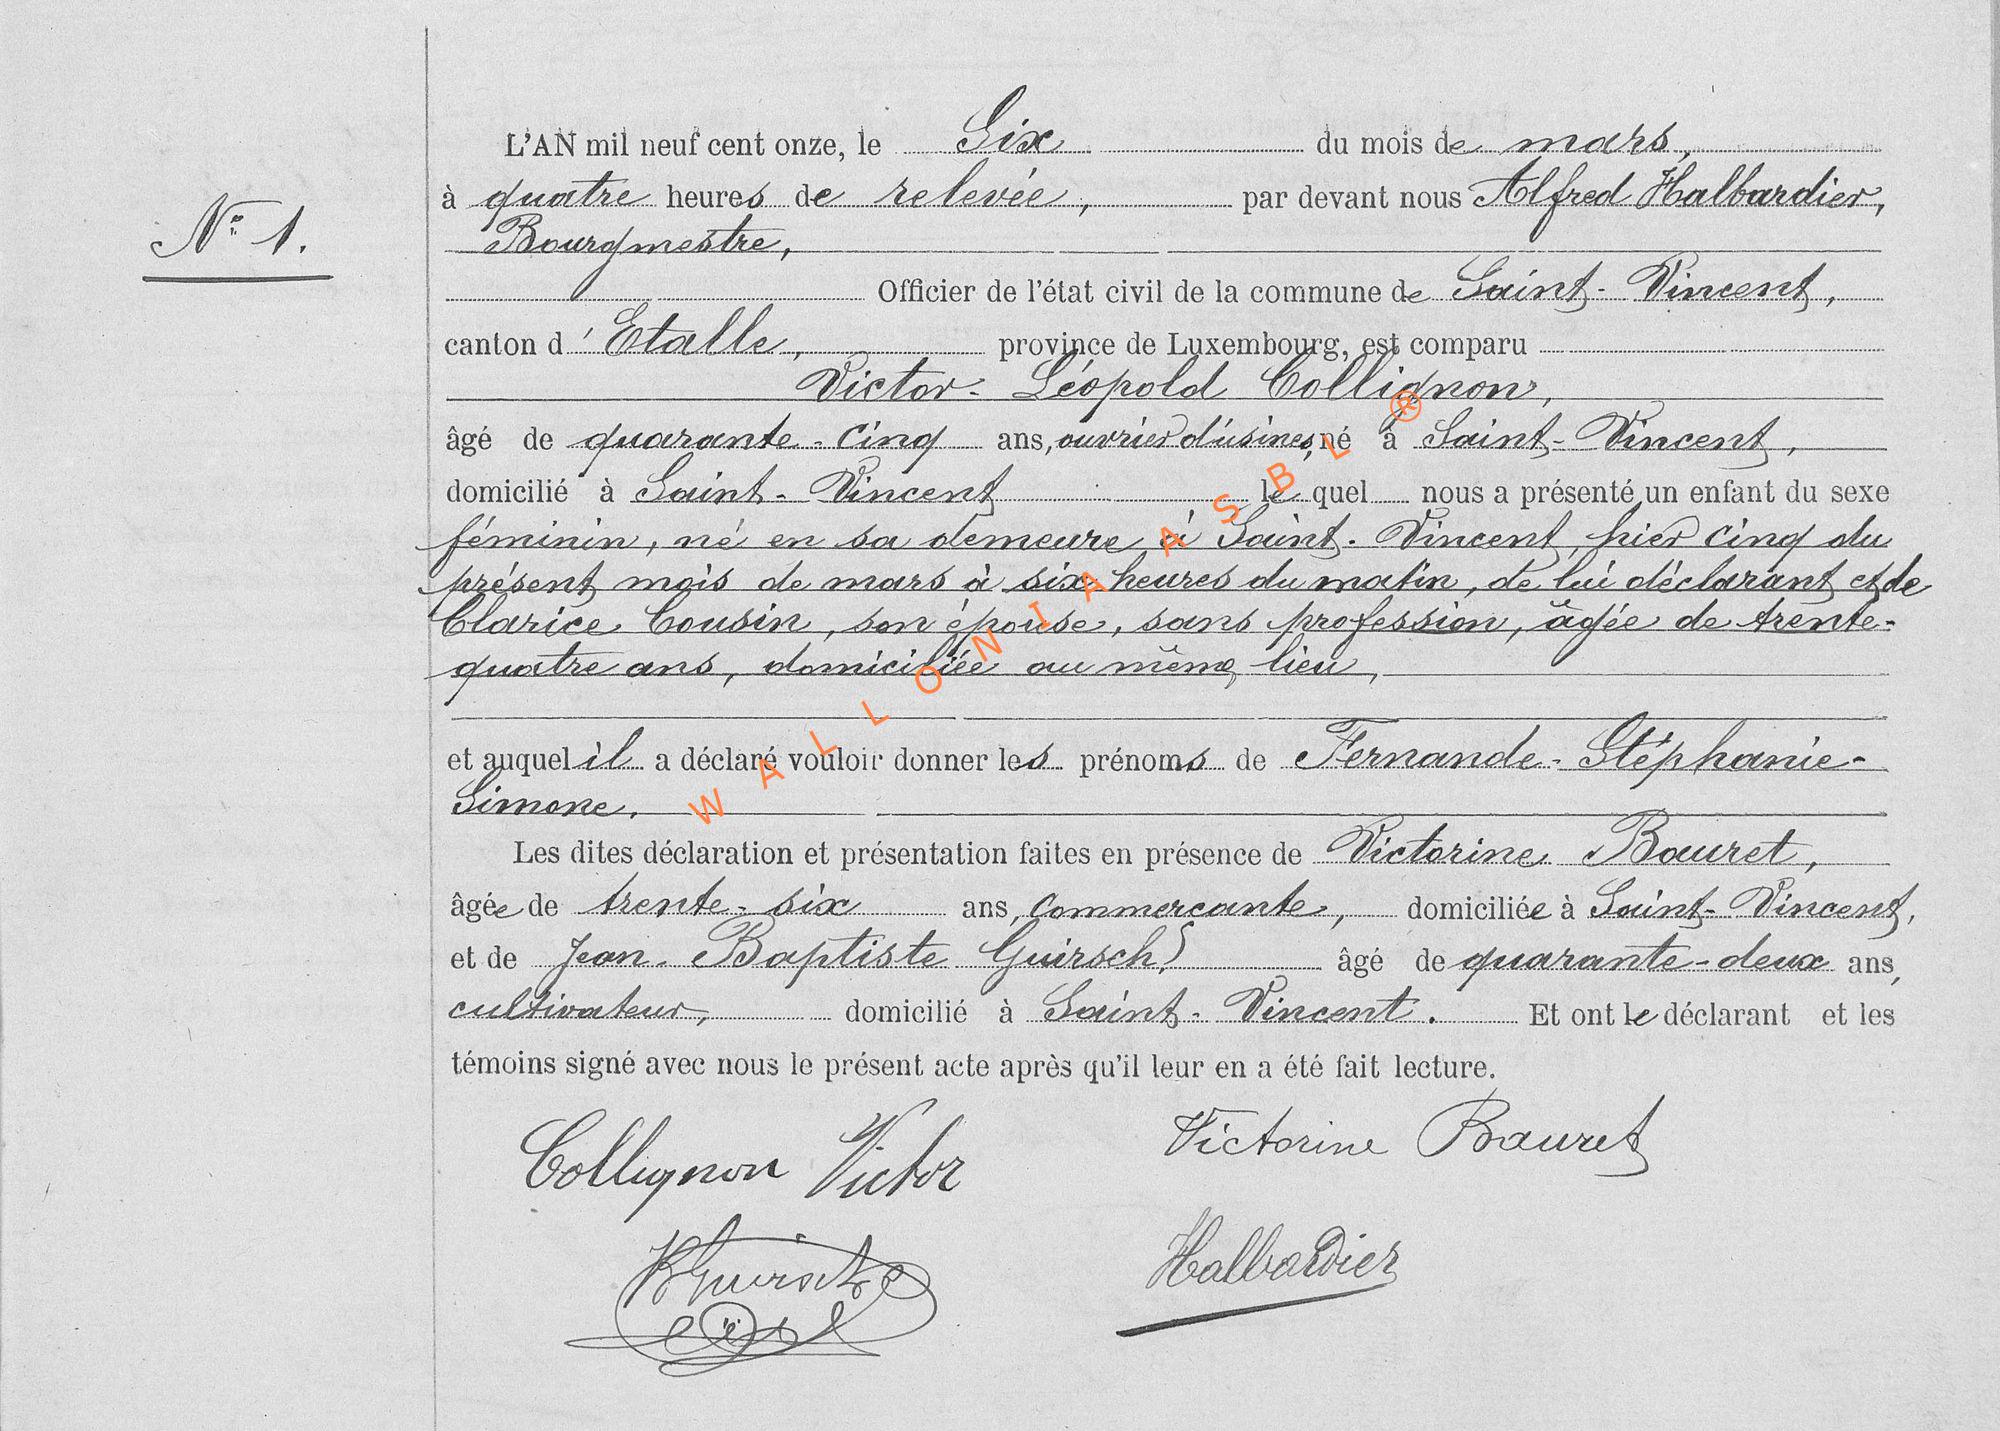 N° 1.
L'AN mil neuf cent onze, le Six du mois de mars,
à quatre heures de relevée, par devant nous Alfred Halbardier,
Bourgmestre,
Officier de l'état civil de la commune de Saint-Vincent,
canton d'Etalle, province de Luxembourg, est comparu
Victor-Léopold Collignon,
âgé de quarante-cinq ans, ouvrier d'usines, né à Saint-Vincent,
domicilié à Saint-Vincent lequel nous a présenté un enfant du sexe
féminin, né en sa demeure à Saint-Vincent, hier cinq du
présent mois de mars à six heures du matin, de lui déclarant et de
Clarice Cousin, son épouse, sans profession, âgée de trente-
quatre ans, domiciliée au même lieu,
et auquel il a déclaré vouloir donner les prénoms de Fernande-Stéphanie-
Simone.
Les dites déclaration et présentation faites en présence de Victorine Bauret,
âgée de trente-six ans, commerçante, domiciliée à Saint-Vincent,
et de Jean-Baptiste Guirsch, âgé de quarante-deux ans,
cultivateur, domicilié à Saint-Vincent. Et ont le déclarant et les
témoins signé avec nous le présent acte après qu'il leur en a été fait lecture.
Collignon Victor
Victorine Bauret
Guirsch
Halbardier
WALLONIA ASBL ®